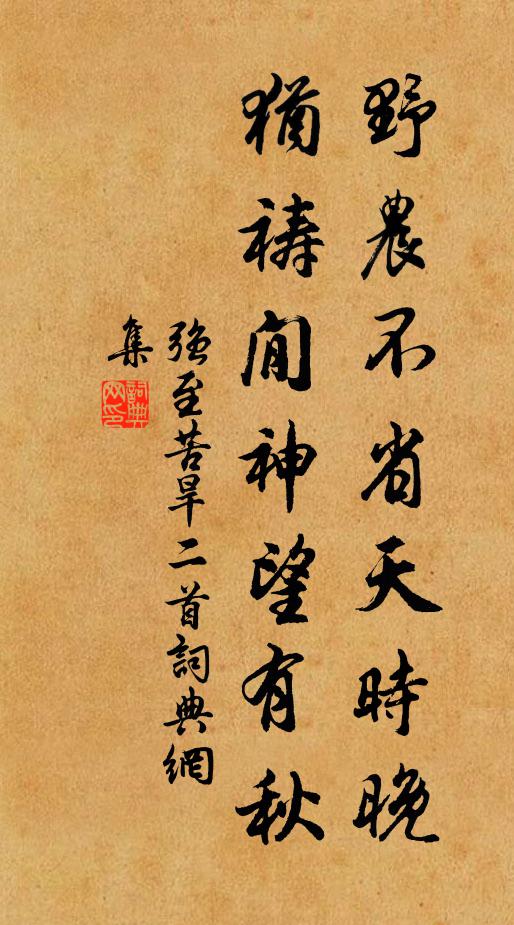 野農不省天時晚
猶禱閒神望有秋
強至苦旱二首詞典網
集
詞典網印